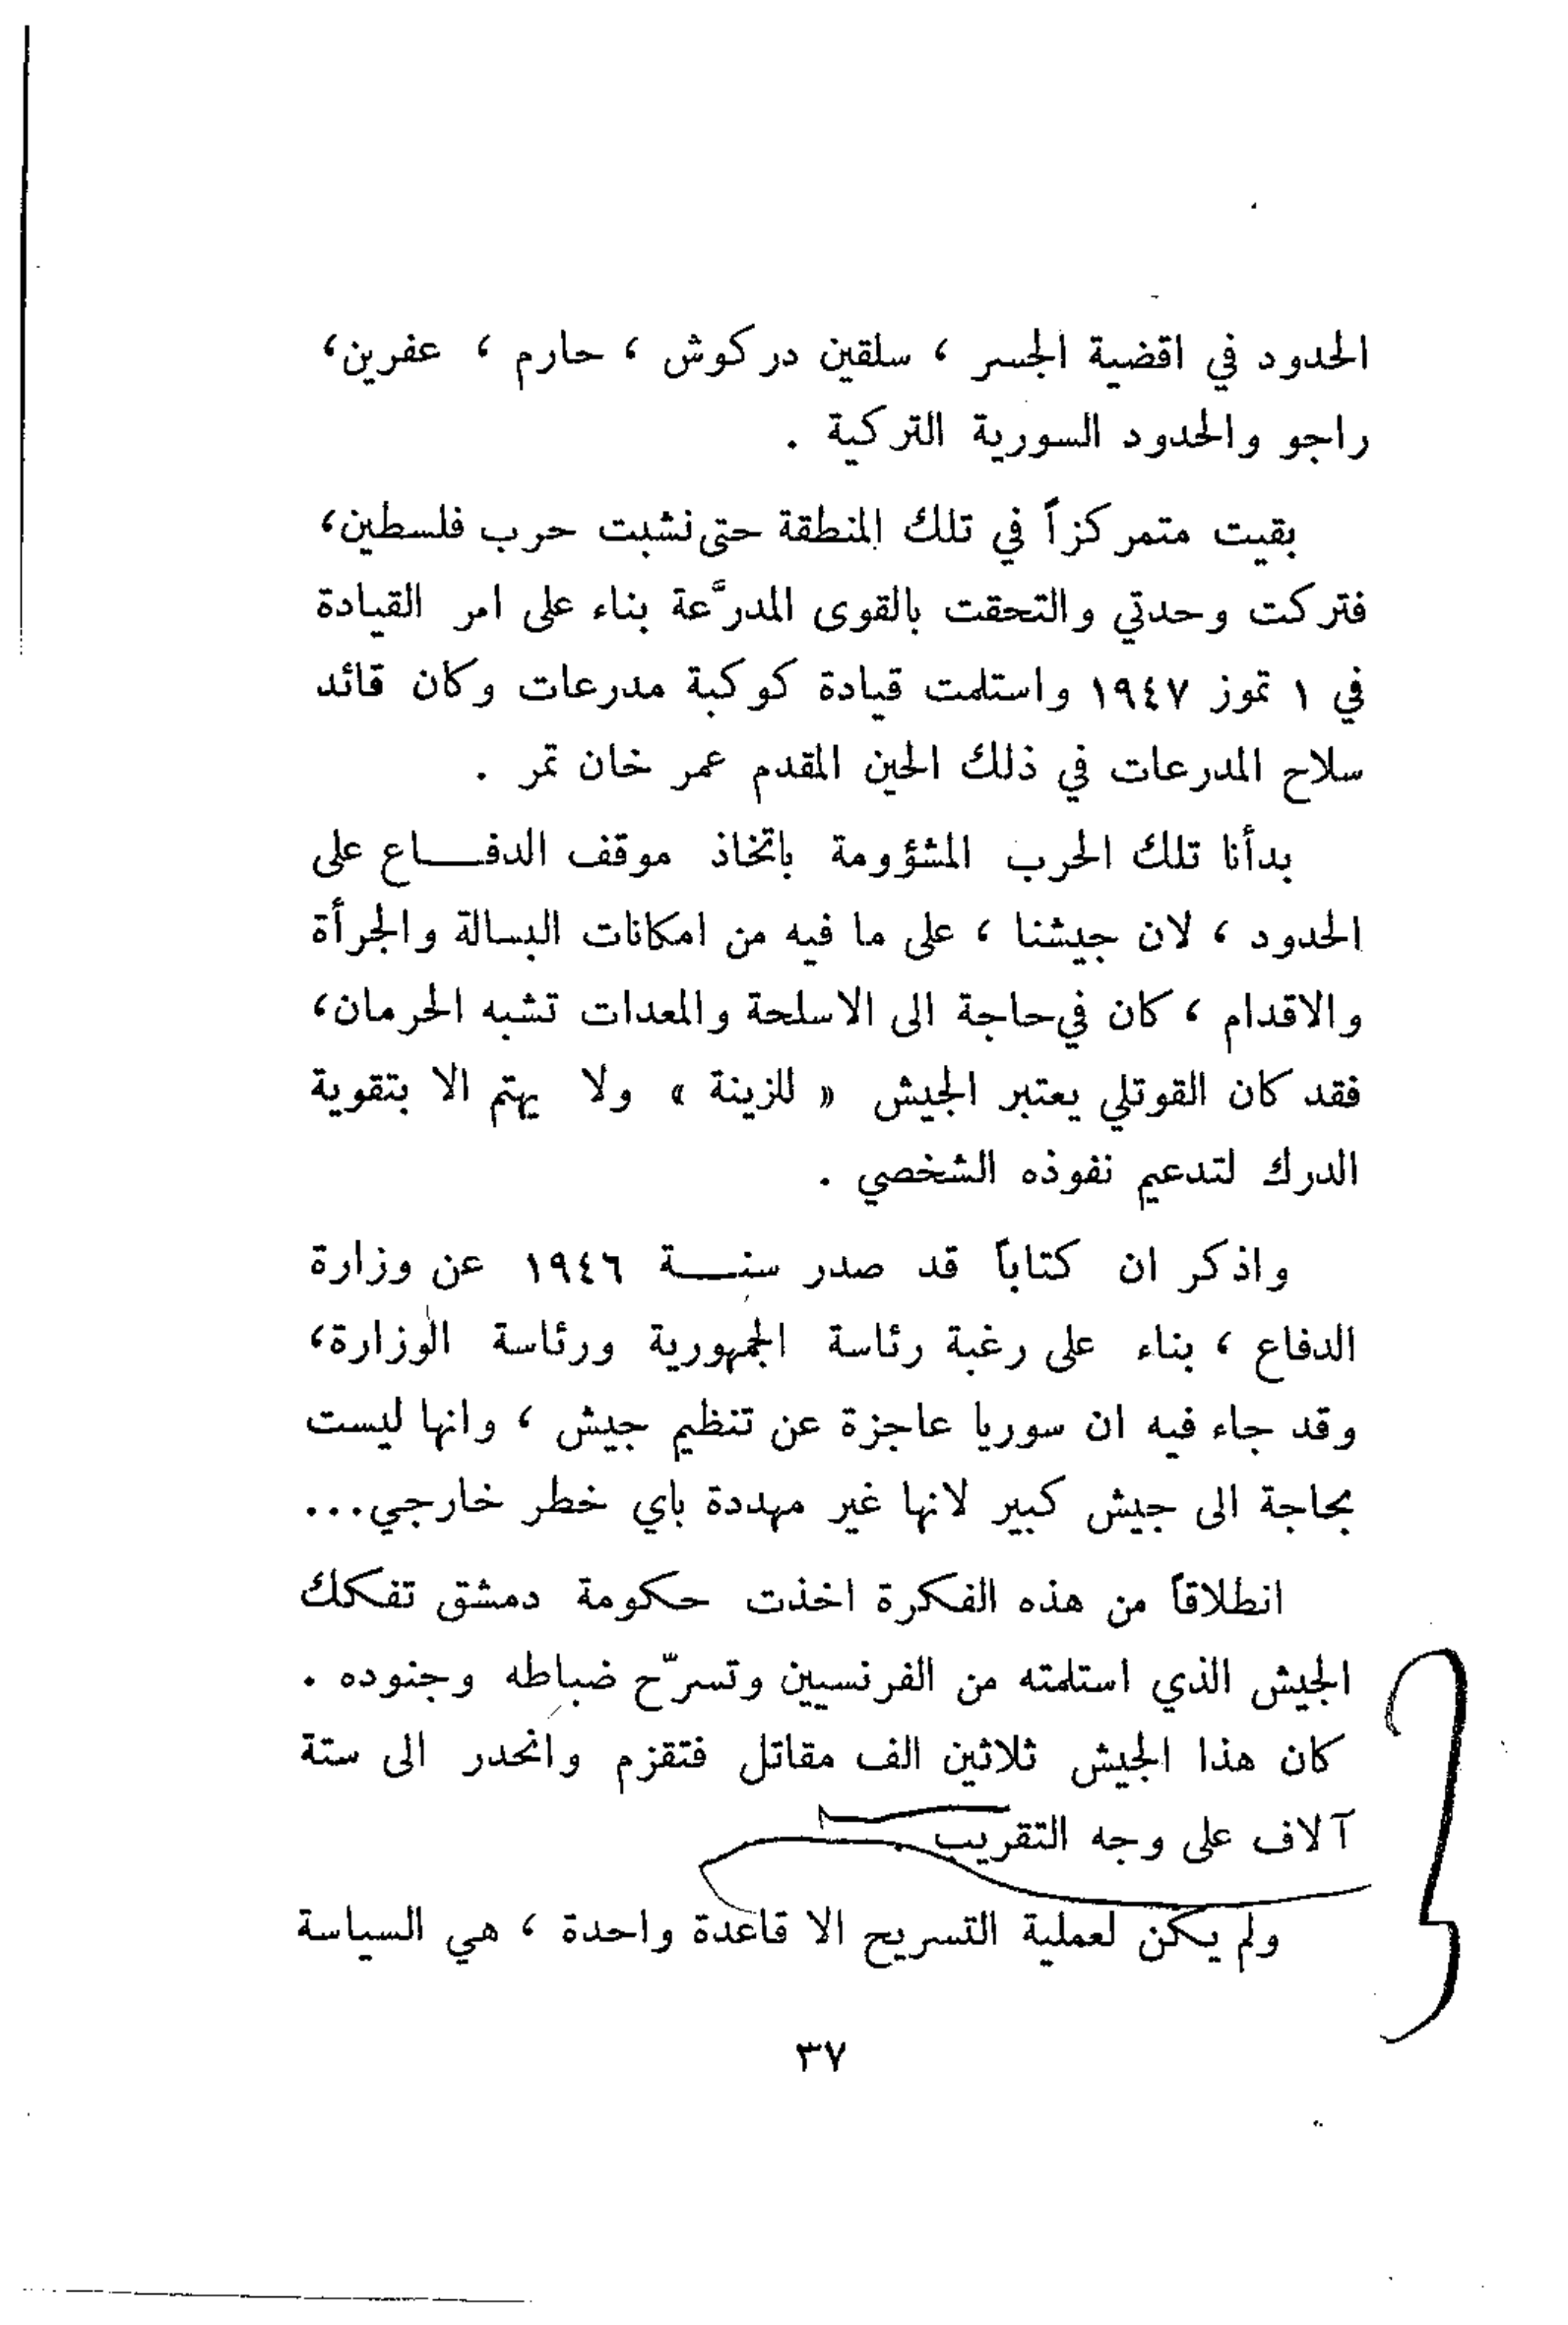 الحدود في اقضية الجسر ، سلقين دركوش ، حارم ، عفرين،
راجو والحدود السورية التركية .
بقيت متمركزاً في تلك المنطقة حتى نشبت حرب فلسطين،
فتركت وحدتي والتحقت بالقوى المدرَّعة بناء على امر القيادة
في ١ تموز ١٩٤٧ واستلمت قيادة كوكبة مدرعات وكان قائد
سلاح المدرعات في ذلك الحين المقدم عمر خان تمر .
بدأنا تلك الحرب المشؤومة باتخاذ موقف الدفـــاع على
الحدود ، لان جيشنا ، على ما فيه من امكانات البسالة والجرأة
والاقدام ، كان في حاجة الى الاسلحة والمعدات تشبه الحرمان،
فقد كان القوتلي يعتبر الجيش « للزينة » ولا يهتم الا بتقوية
الدرك لتدعيم نفوذه الشخصي .
واذكر ان كتاباً قد صدر سنـــة ١٩٤٦ عن وزارة
الدفاع ، بناء على رغبة رئاسة الجمهورية ورئاسة الوزارة،
وقد جاء فيه ان سوريا عاجزة عن تنظيم جيش ، وانها ليست
بحاجة الى جيش كبير لانها غير مهددة باي خطر خارجي...
انطلاقاً من هذه الفكرة اخذت حكومة دمشق تفكك
الجيش الذي استلمته من الفرنسيين وتسرّح ضباطه وجنوده .
كان هذا الجيش ثلاثين الف مقاتل فتقزم وانحدر الى ستة
آلاف على وجه التقريب .
ولم يكن لعملية التسريح الا قاعدة واحدة ، هي السياسة
٣٧